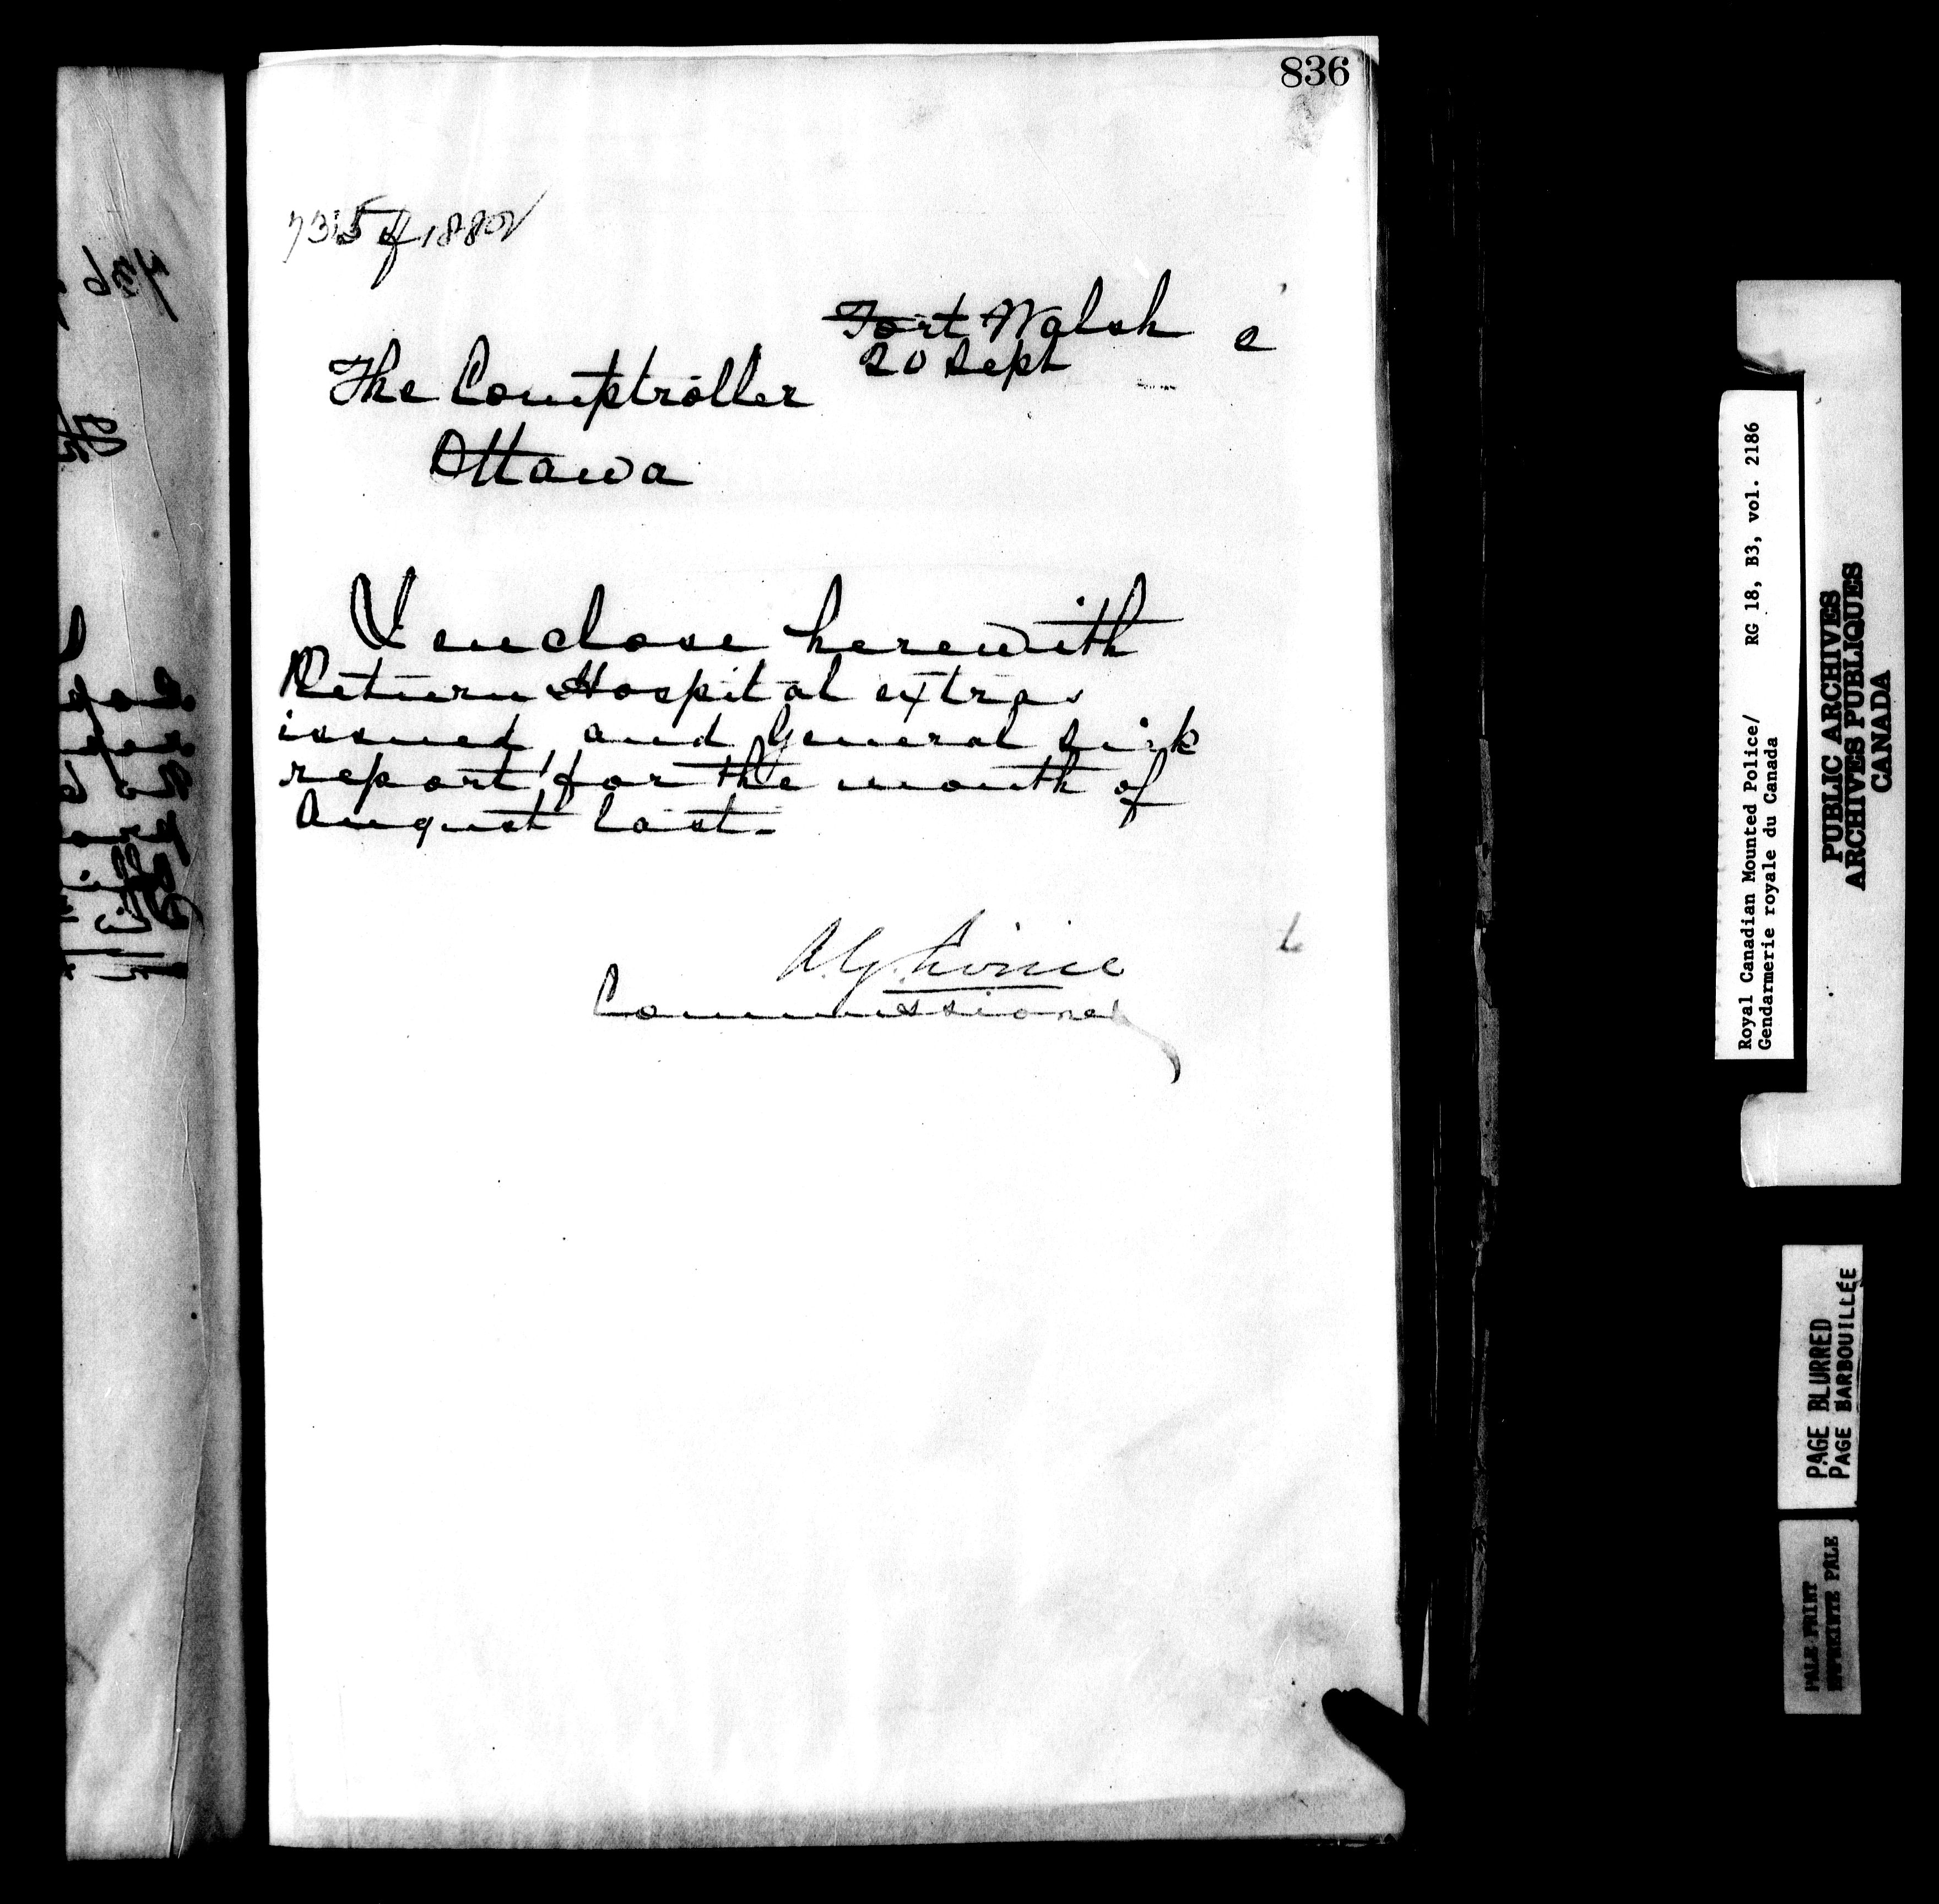 836
7315 of 1882
Fort Walsh
20 Sept
The Comptroller
Ottawa
I enclose herewith
Return Hospital extras
issued, and General Sick
report, for the month of
August last.
A.G. Irvine
Commissioner
Royal Canadian Mounted Police/ RG 18, B3, vol. 2186
Gendarmerie royale du Canada
PUBLIC ARCHIVES
ARCHIVES PUBLIQUES
CANADA
PAGE BLURRED
PAGE BARBOUILLÉE
PALE PRINT
PALE